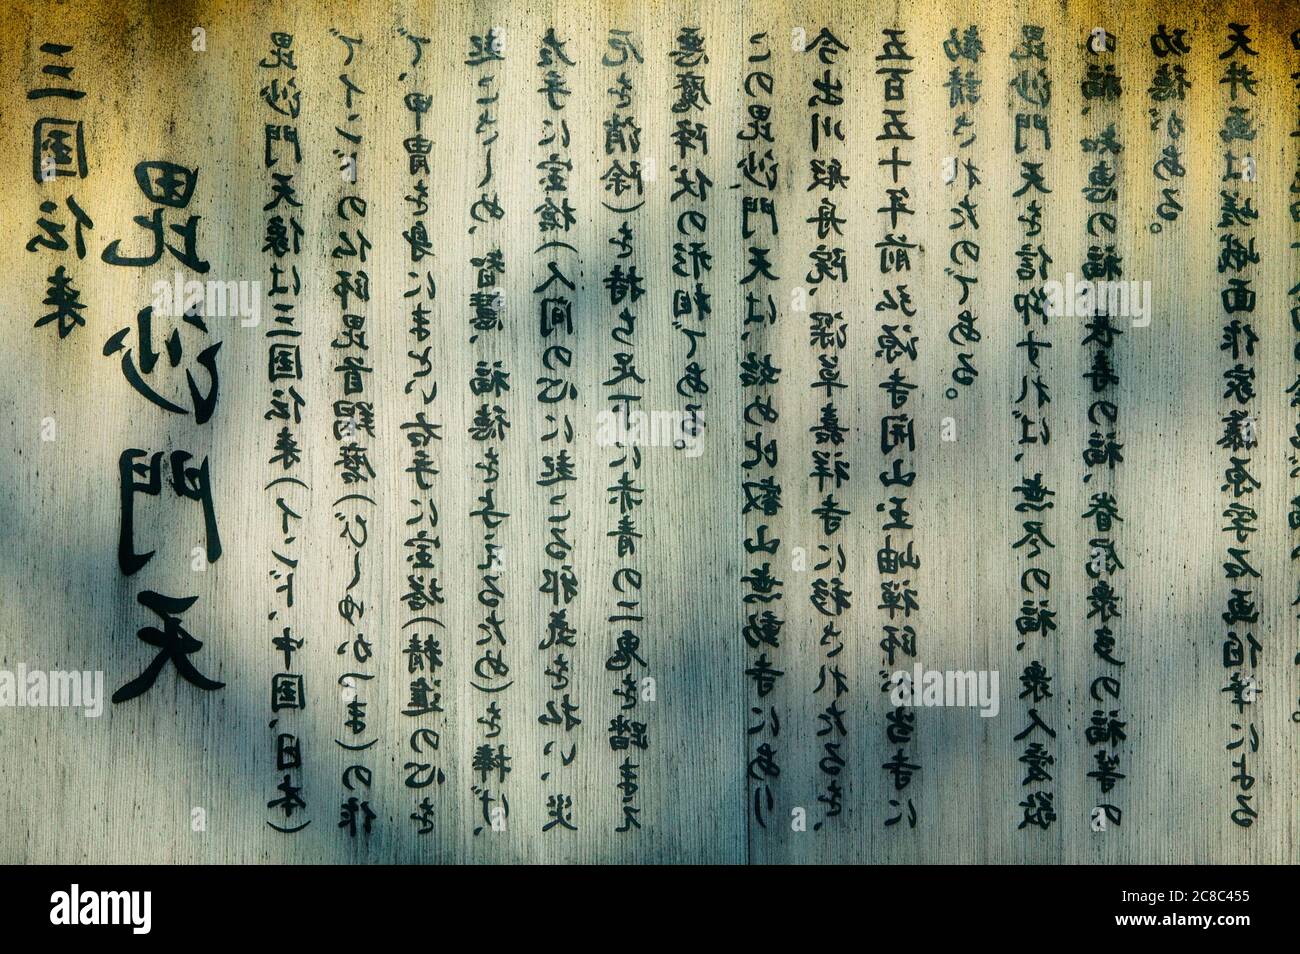 三国伝来
毘沙門天
毘沙門天像は三国伝来(インド、中国、日本)
でインドの仏師毘首羯磨(びしゅかつま)の作
で、甲冑を身にまとい右手に宝塔(精進の心を
起こさしめ、智慧、福徳を与えるため)を捧げ、
左手に宝槍(人間の心に起こる邪気を払い、災
厄を消除)を持ち足下に赤青の二鬼を踏まえ
悪魔降伏の形相である。
この毘沙門天は、始め比叡山無動寺にあり
今出川般舟院、深草嘉祥寺に移されたるを、
五百五十年前弘源寺開山玉岫禅師が当寺に
勧請されたのである。
毘沙門天を信仰すれば、無尽の福、衆人愛敬
の福、知恵の福、長寿の福、眷属衆多の福等の
功徳がある。
天井画は嵯峨面作家藤原孚石画伯による
alamy
Image ID: 2C8C455
www.alamy.com